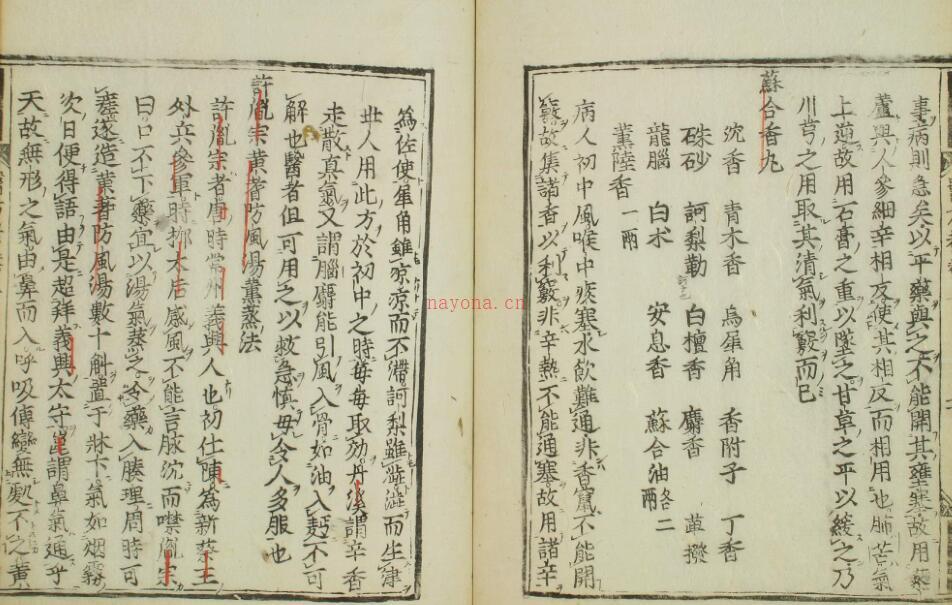 事病則急矣以平藥與之不能開其壅塞故用藜
蘆與人參細辛相反使其相反而相用也肺苦氣
上逆故用石膏之重以墜之甘草之平以緩之乃
川芎之用取其清氣利竅而已
蘇合香丸
沈香 青木香 烏犀角 香附子 丁香
硃砂 訶梨勒 白檀香 麝香 蓽撥
龍腦 白朮 安息香 蘇合油各二兩
薰陸香一兩
病人初中風喉中痰塞水飲難通非香竄不能開
竅故集諸香以利竅非辛熱不能通塞故用諸辛
為佐使犀角雖凉凉而不滯訶梨雖澁澁而生津
世人用此方於初中之時每每取効丹溪謂辛香
走散真氣又謂腦麝能引風入骨如油入麫不可
解也醫者但可用之以救急慎毋令人多服也
許胤宗黃蓍防風湯薰蒸法
許胤宗者唐時常州義興人也初仕陳為新蔡王
外兵參軍時柳太后感風不能言脉沈而噤胤宗
曰口不下藥宜以湯氣蒸之令藥入腠理周時可
瘥遂造黃蓍防風湯數十斛置于牀下氣如烟霧
次日便得語由是超拜義興太守崑謂鼻氣通乎
天故無形之氣由鼻而入呼吸傳變無處不之黃
nayona.cn